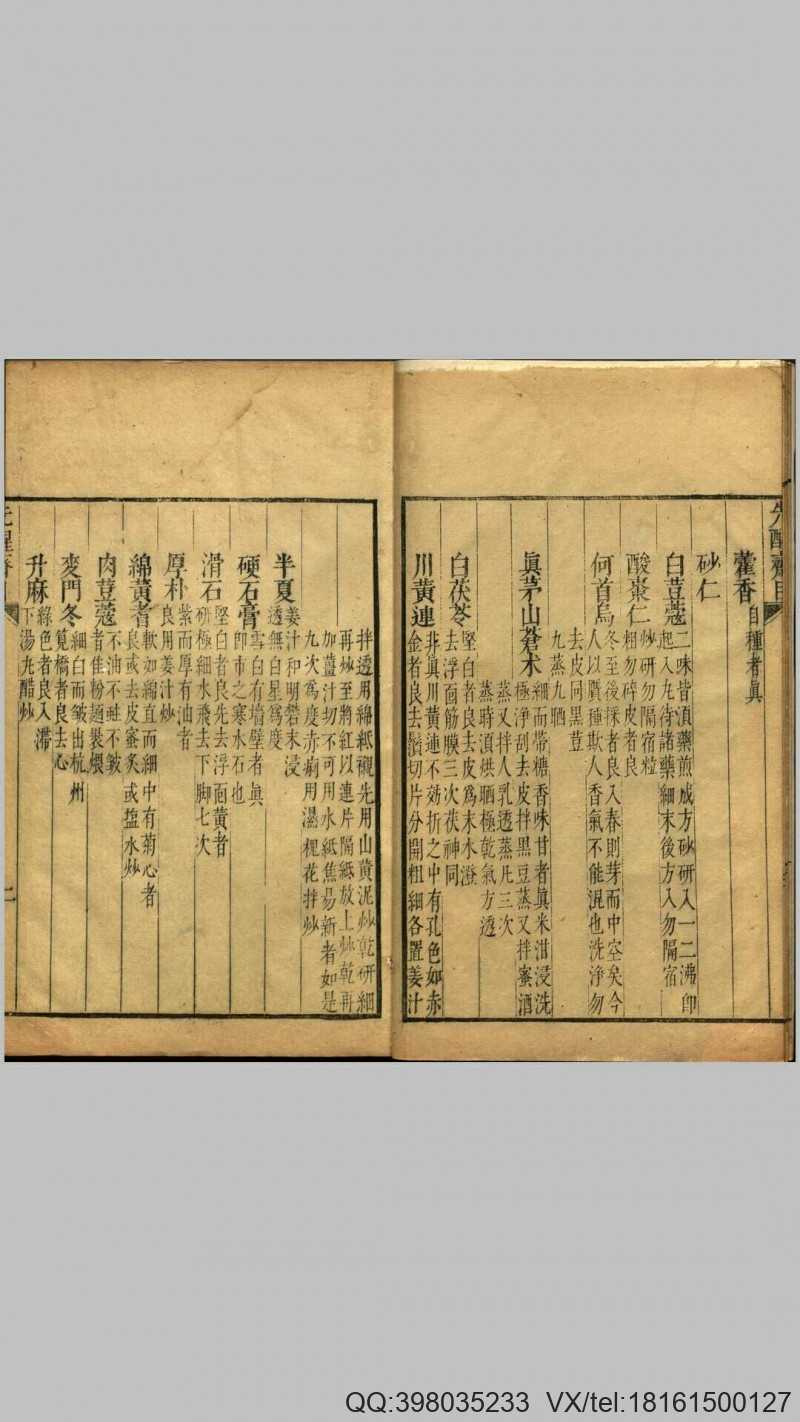 先醒齋
藿香自種者眞
砂仁
白荳蔻二味皆湏藥煎成方砂研入一二沸卽
起入丸待諸藥細末後方入勿隔宿
炒研勿隔宿
酸棗仁粒粗勿碎皮者良
何首烏冬至後採者良入春則芽而中空矣今
人以贋種欺人香氣不能混也洗淨勿
去皮同黑荳
九蒸九晒
眞茅山蒼术細而帶糖香味甘者眞米泔浸洗
極淨刮去皮拌黑豆蒸又拌蜜酒
蒸又拌人乳透蒸凡三次
蒸時湏烘晒極乾氣方透
白茯苓堅白者良去皮爲末水澄
去浮面筋膜三次茯神同
川黃連非眞川黃連不効折之中有孔色如赤
金者良去鬚切片分開粗細各置姜汁
拌透用綿紙襯先用山黃泥炒乾研細
再炒至將紅以連片隔紙放上炒乾再
加薑汁切不可用水紙焦易新者如是
九次爲度赤痢用濕槐花拌炒
半夏姜汁和明礬末浸
透無白星爲度
硬石膏雪白有墻壁者眞
卽市之寒水石也
滑石堅白者良先去浮面黃者
研極細水飛去下脚七次
厚朴紫而厚有油者
良用姜汁炒
綿黃耆軟如綿直而細中有菊心者
良或去皮蜜炙或塩水炒
肉荳蔻不油不蛀不皺
者佳粉麵裹煨
麥門冬細白而皺出杭州
筧橋者良去心
升麻綠色者良入滯
下湯丸醋炒
先醒齋
QQ:398035233 VX/tel:18161500127